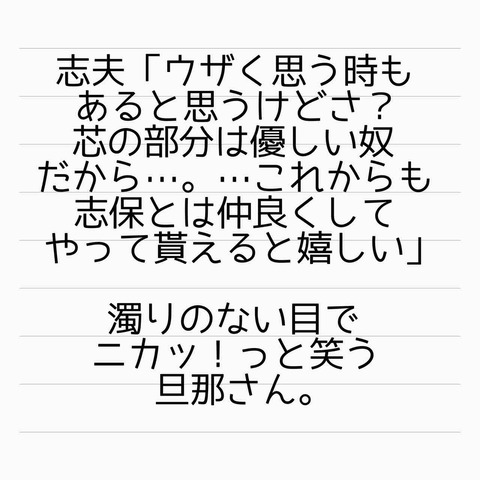 志夫「ウザく思う時も
あると思うけどさ？
芯の部分は優しい奴
だから…。…これからも
志保とは仲良くして
やって貰えると嬉しい」
濁りのない目で
ニカッ！っと笑う
旦那さん。